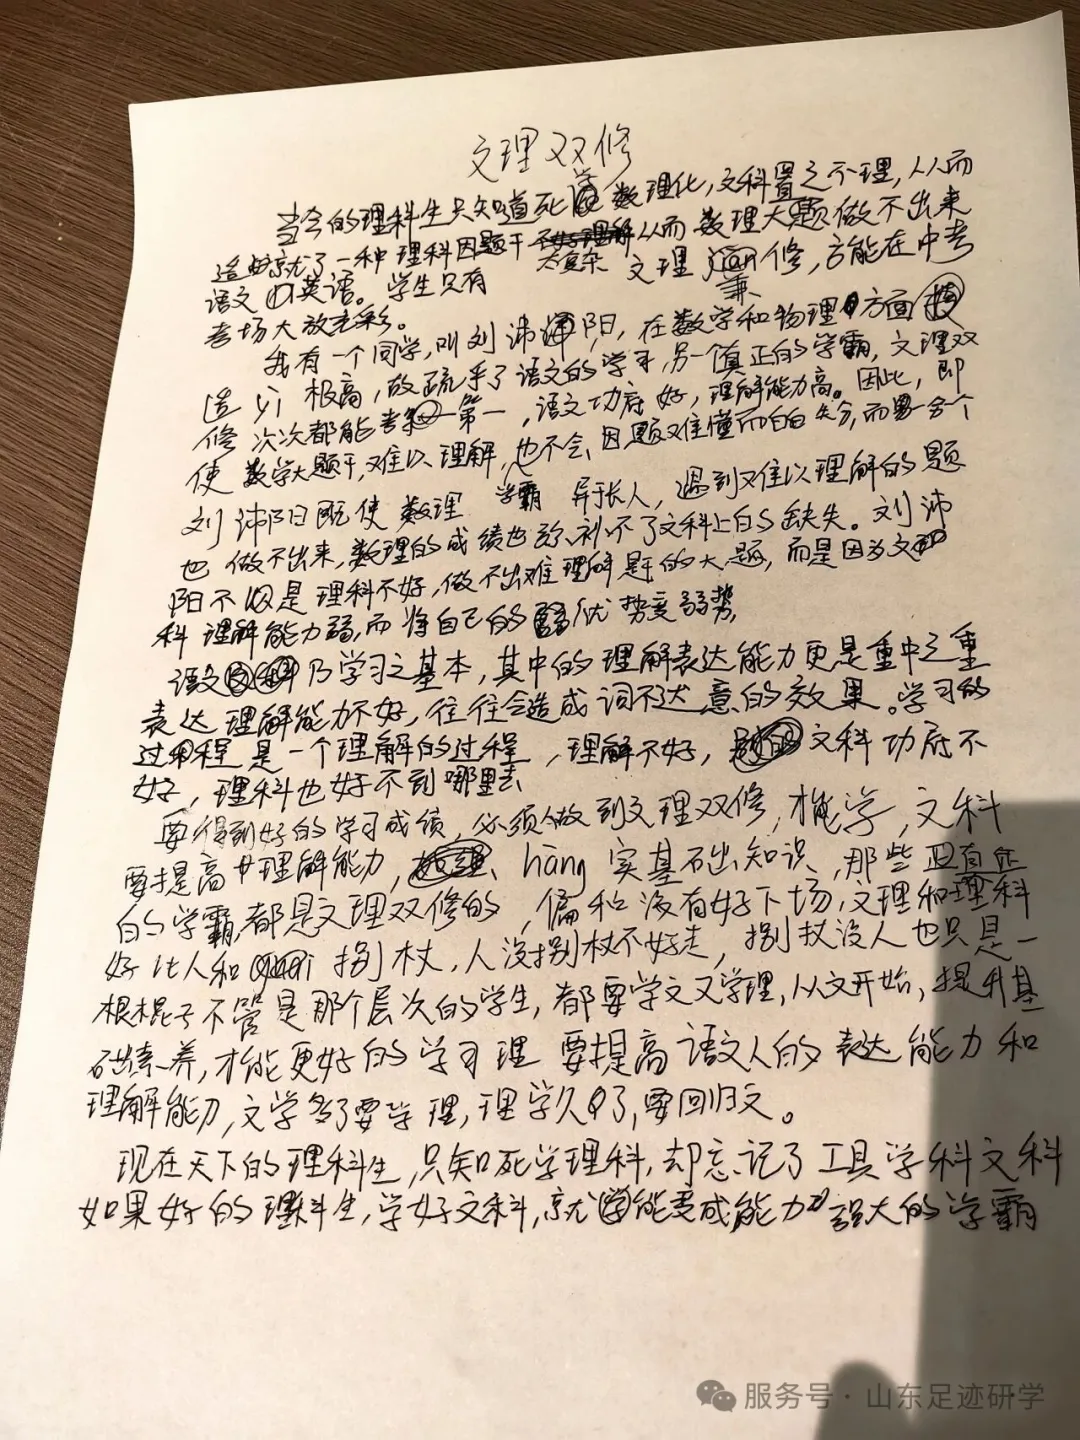 文理双修
当今的理科生只知道死学数理化,文科置之不理,从而
造就了一种理科因题干太复杂从而数理大题做不出来
语文 英语。学生只有文理jian修,方能在中考
兼
考场大放光彩。
我有一个同学,叫刘沛阳,在数学和物理方面
造yi极高,故疏乎了语文的学习,另一个真正的学霸,文理双
修 次次都能考第一,语文功底好,理解能力高。因此,即
使 数学大题干,难以理解,也不会因题难懂而白白失分,而另一个
刘沛阳既使数理 学霸 异于长人,遇到难以理解的题
也做不出来,数理的成绩也弥补不了文科上的缺失。刘沛
阳不仅是理科不好,做不出难理解题干的大题,而是因为文
科理解能力弱,而将自己的优势变弱势,
语文乃学习之基本,其中的理解表达能力更是重中之重
表达理解能力不好,往往会造成词不达意的效果。学习的
过程是一个理解的过程,理解不好,文科功底不
好,理科也好不到哪里去
要得到好的学习成绩,必须做到文理双修,才能学,文科
要提高理解能力,hāng实基础知识,那些真正
的学霸,都是文理双修的,偏和没有好下场,文理和理科
好比人和拐杖,人没拐杖不好走,拐杖没人也只是一
根棍子不管是那个层次的学生,都要学文又学理,从文开始,提升基
础素养,才能更好的学习理 要提高语文人的表达能力和
理解能力,文学多了要学理,理学久了,要回归文。
现在天下的理科生,只知死学理科,却忘记了工具学科文科
如果好的理科生,学好文科,就能变成能力强大的学霸
服务号·山东足迹研学